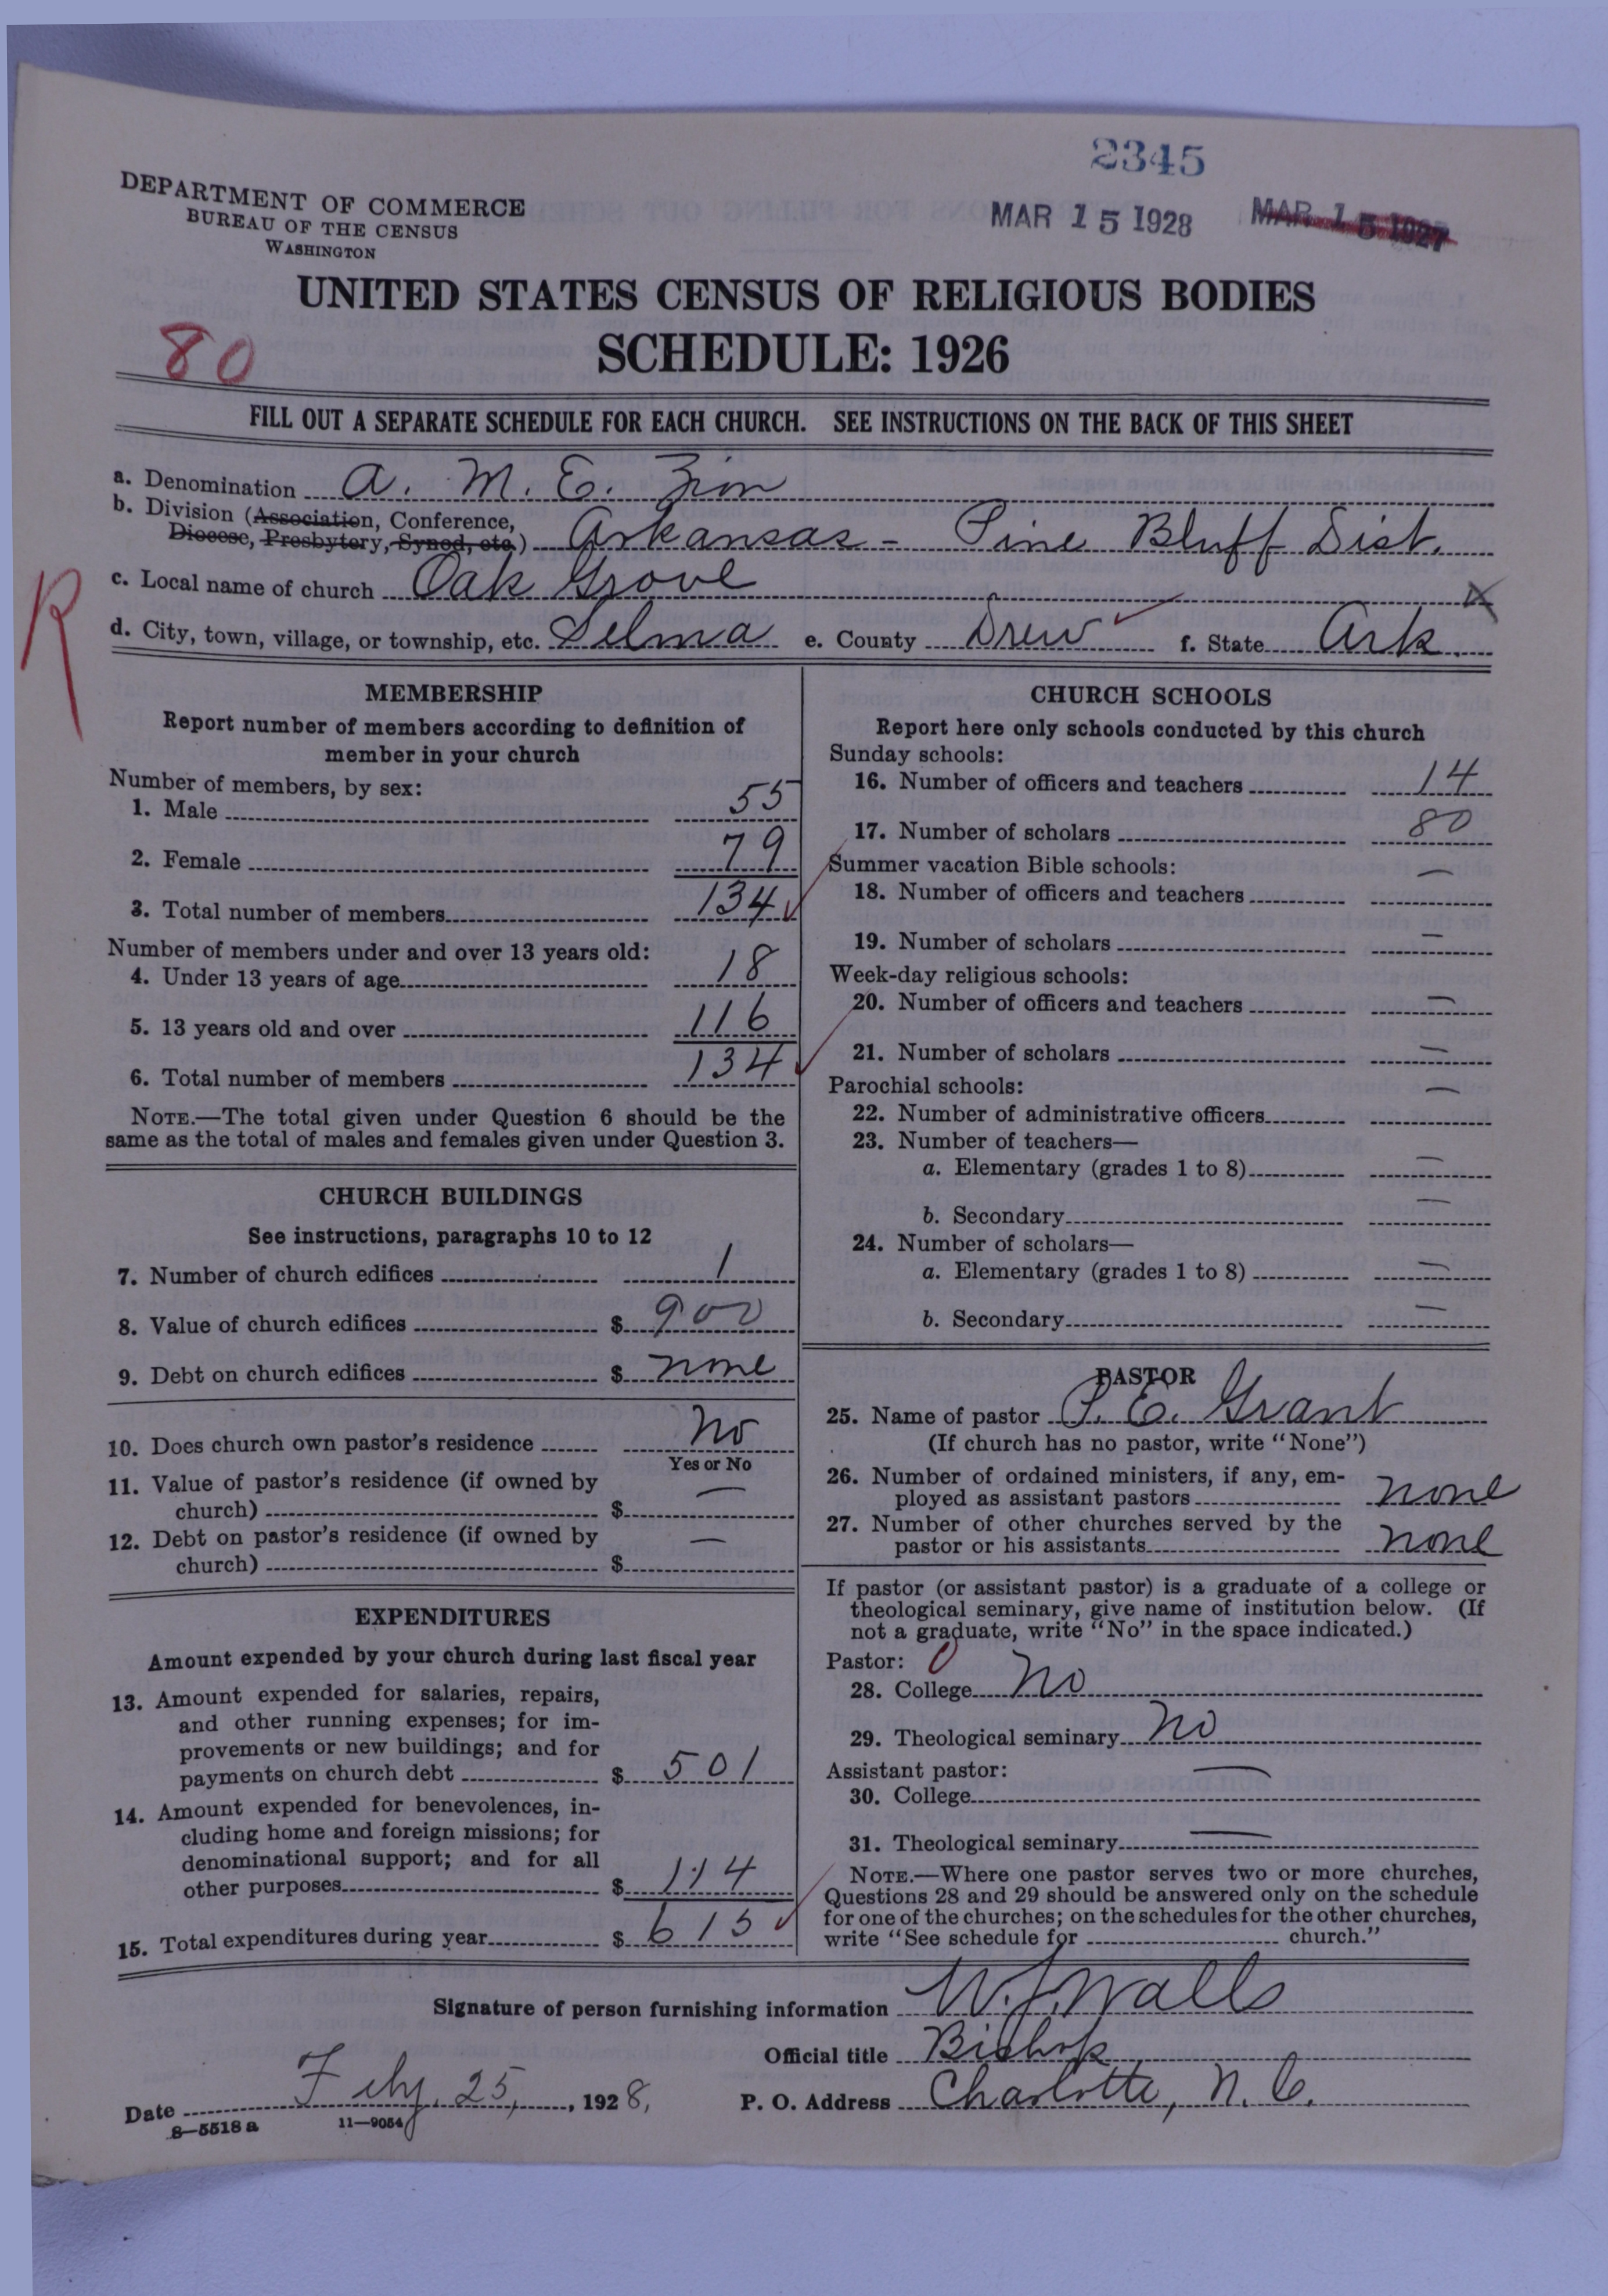 2345
DEPARTMENT OF COMMERCE
BUREAU OF THE CENSUS
WASHINGTON
MAR 15 1928 MAR 15 1927
UNITED STATES CENSUS OF RELIGIOUS BODIES
80
SCHEDULE: 1926
FILL OUT A SEPARATE SCHEDULE FOR EACH CHURCH. SEE INSTRUCTIONS ON THE BACK OF THIS SHEET
a. Denomination A. M. E. Zion
b. Division (Association, Conference,
Diocese, Presbytery, Synod, etc.) Arkansas - Pine Bluff Dist.
R
c. Local name of church Oak Grove
d. City, town, village, or township, etc. Selma e. County Drew f. State Ark.
MEMBERSHIP
Report number of members according to definition of
member in your church
Number of members, by sex:
1. Male 55
2. Female 79
3. Total number of members 134
Number of members under and over 13 years old:
4. Under 13 years of age 18
5. 13 years old and over 116
6. Total number of members 134
NOTE.—The total given under Question 6 should be the
same as the total of males and females given under Question 3.
CHURCH BUILDINGS
See instructions, paragraphs 10 to 12
7. Number of church edifices 1
8. Value of church edifices $ 900
9. Debt on church edifices $ none
10. Does church own pastor's residence No
Yes or No
11. Value of pastor's residence (if owned by
church) $ —
12. Debt on pastor's residence (if owned by
church) $ —
EXPENDITURES
Amount expended by your church during last fiscal year
13. Amount expended for salaries, repairs,
and other running expenses; for im-
provements or new buildings; and for
payments on church debt $ 501
14. Amount expended for benevolences, in-
cluding home and foreign missions; for
denominational support; and for all
other purposes $ 114
15. Total expenditures during year $ 615
CHURCH SCHOOLS
Report here only schools conducted by this church
Sunday schools:
16. Number of officers and teachers 14
17. Number of scholars 80
Summer vacation Bible schools:
18. Number of officers and teachers —
19. Number of scholars —
Week-day religious schools:
20. Number of officers and teachers —
21. Number of scholars —
Parochial schools:
22. Number of administrative officers —
23. Number of teachers—
a. Elementary (grades 1 to 8) —
b. Secondary —
24. Number of scholars—
a. Elementary (grades 1 to 8) —
b. Secondary —
PASTOR
25. Name of pastor P. E. Grant
(If church has no pastor, write "None")
26. Number of ordained ministers, if any, em-
ployed as assistant pastors none
27. Number of other churches served by the
pastor or his assistants none
If pastor (or assistant pastor) is a graduate of a college or
theological seminary, give name of institution below. (If
not a graduate, write "No" in the space indicated.)
Pastor: 0
28. College No
29. Theological seminary No
Assistant pastor:
30. College —
31. Theological seminary —
NOTE.—Where one pastor serves two or more churches,
Questions 28 and 29 should be answered only on the schedule
for one of the churches; on the schedules for the other churches,
write "See schedule for church."
Signature of person furnishing information W. J. Walls
Official title Bishop
Date Feby. 25, , 1928, P. O. Address Charlotte, N. C.
8—5518 a 11—9054